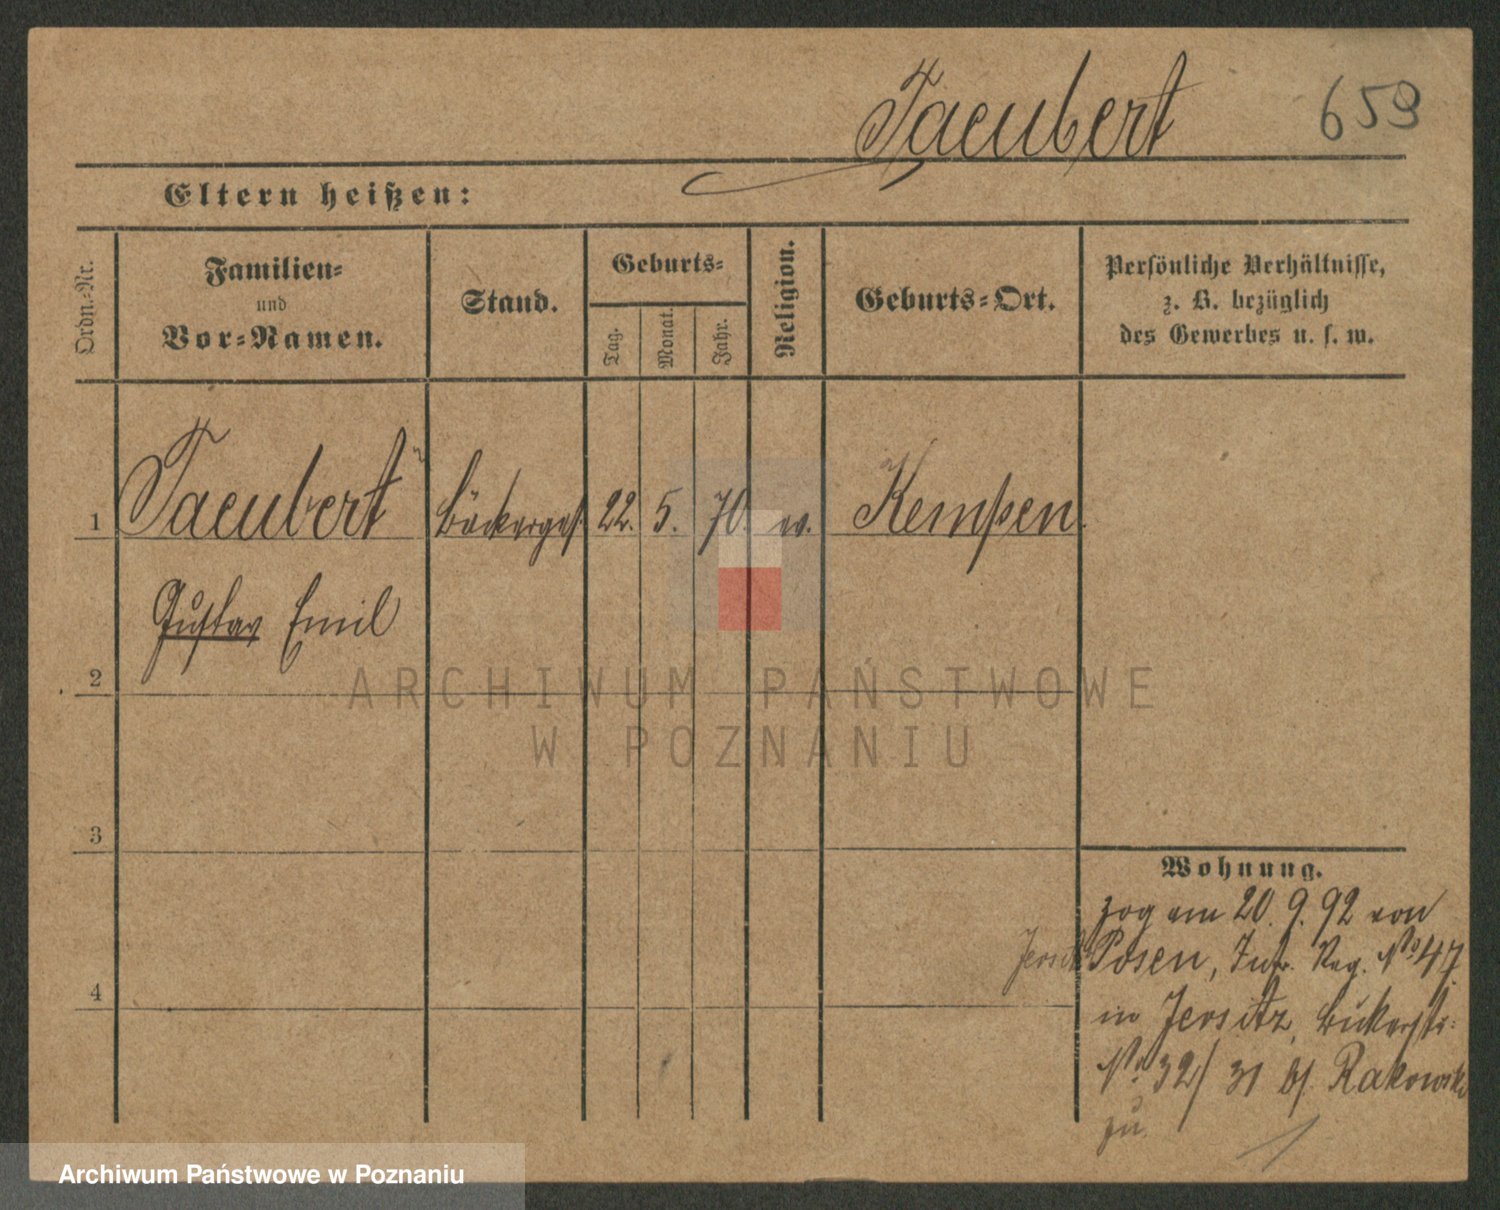 Taeubert 659
Eltern heißen:
Ordn.-Nr.
Familien-
und
Vor-Namen.
Stand.
Geburts-
Tag.
Monat.
Jahr.
Religion.
Geburts-Ort.
Persönliche Verhältnisse,
z. B. bezüglich
des Gewerbes u. s. w.
1 Taeubert Bäckerges. 22. 5. 70. ev. Kempen
Gustav Emil
2
3
4
Wohnung.
zog am 20. 9. 92 von
Posen, Inf. Reg. No 47
in Jersitz, Bukerstr.
No 32/31 bei Rakowski
zu.
ARCHIWUM PAŃSTWOWE
W POZNANIU
Archiwum Państwowe w Poznaniu